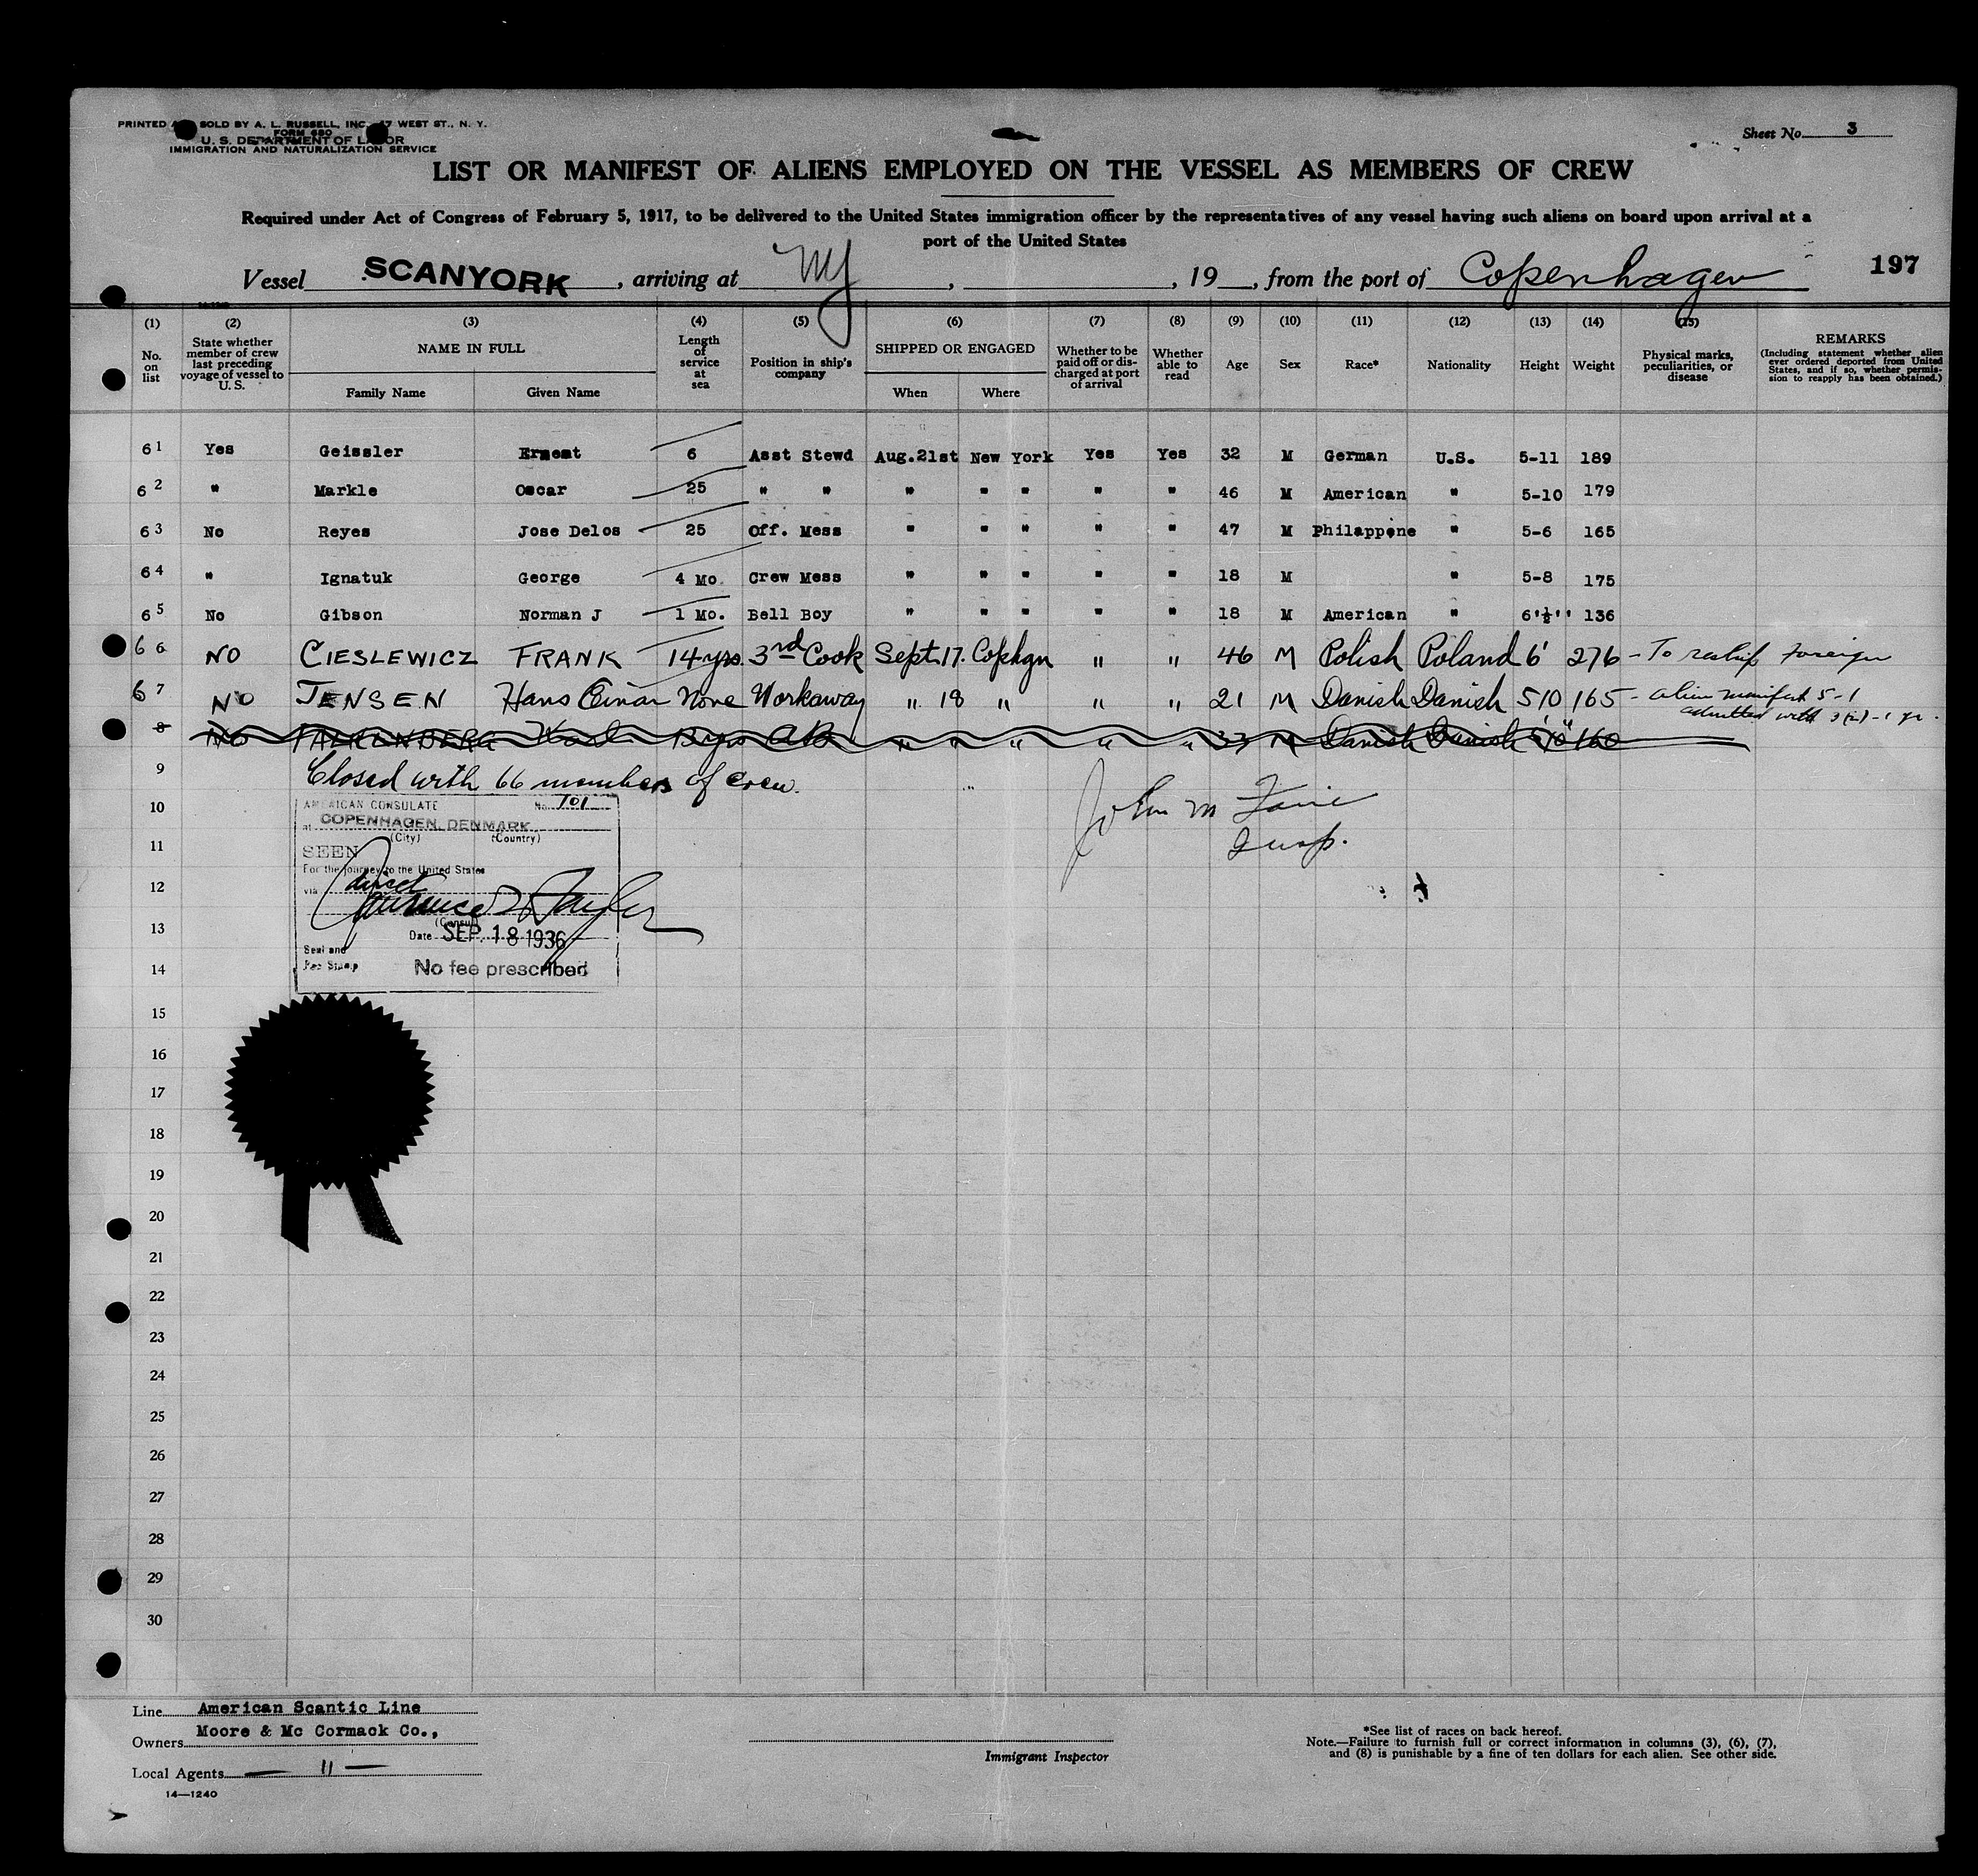 PRINTED AND SOLD BY A. L. RUSSELL, INC., 47 WEST ST., N. Y.
FORM 680
U. S. DEPARTMENT OF LABOR
IMMIGRATION AND NATURALIZATION SERVICE
Sheet No. 3
LIST OR MANIFEST OF ALIENS EMPLOYED ON THE VESSEL AS MEMBERS OF CREW
Required under Act of Congress of February 5, 1917, to be delivered to the United States immigration officer by the representatives of any vessel having such aliens on board upon arrival at a
port of the United States
Vessel SCANYORK, arriving at NY, , 19 , from the port of Copenhagen 197
(1) No. on list
(2) State whether member of crew last preceding voyage of vessel to U. S.
(3) NAME IN FULL Family Name Given Name
(4) Length of service at sea
(5) Position in ship's company
(6) SHIPPED OR ENGAGED When Where
(7) Whether to be paid off or discharged at port of arrival
(8) Whether able to read
(9) Age
(10) Sex
(11) Race*
(12) Nationality
(13) Height
(14) Weight
(15) Physical marks, peculiarities, or disease
REMARKS (Including statement whether alien ever ordered deported from United States, and if so, whether permission to reapply has been obtained.)
61 Yes Geissler Ernest 6 Asst Stewd Aug.21st New York Yes Yes 32 M German U.S. 5-11 189
62 " Markle Oscar 25 " " " " " " " 46 M American " 5-10 179
63 No Reyes Jose Delos 25 Off. Mess " " " " " 47 M Philappone " 5-6 165
64 " Ignatuk George 4 Mo. Crew Mess " " " " " 18 M " 5-8 175
65 No Gibson Norman J 1 Mo. Bell Boy " " " " " 18 M American " 6'½'' 136
66 NO CIESLEWICZ FRANK 14 yrs. 3rd Cook Sept.17. Cophgn " " 46 M Polish Poland 6' 276 - To reship foreign
67 NO JENSEN Hans Einar None Workaway " 18 " " " 21 M Danish Danish 510 165 - alien manifest 5-1
admitted with 3(2) - 1 yr.
8 NO FALKENBERG Karl 13 yrs AB " " " " " 33 M Danish Danish 5'10" 160
9 Closed with 66 members of crew.
John M
Insp.
AMERICAN CONSULATE No. 101
at COPENHAGEN, DENMARK
(City) (Country)
SEEN
For the journey to the United States
via direct
(Consul)
Date SEP. 18 1936
Seal and
Fee Stamp No fee prescribed
10
11
12
13
14
15
16
17
18
19
20
21
22
23
24
25
26
27
28
29
30
Line American Scantic Line
Owners Moore & Mc Cormack Co.,
Local Agents — " —
14—1240
Immigrant Inspector
*See list of races on back hereof.
Note.—Failure to furnish full or correct information in columns (3), (6), (7),
and (8) is punishable by a fine of ten dollars for each alien. See other side.